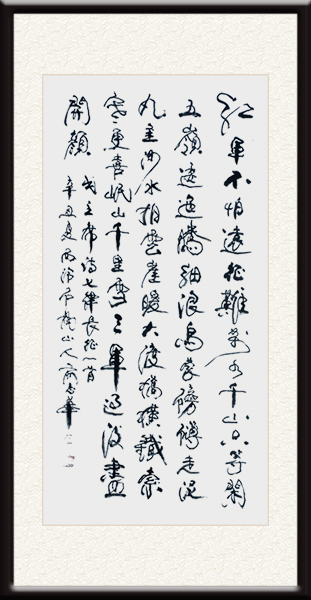 红軍不怕遠征難萬水千山只等閑
五嶺逶迤騰細浪烏蒙磅礴走泥
丸金沙水拍雲崖暖大渡橋橫鐵索
寒更喜岷山千里雪三軍過後盡
開顏
毛主席詩七律長征一首
辛丑夏山人志華